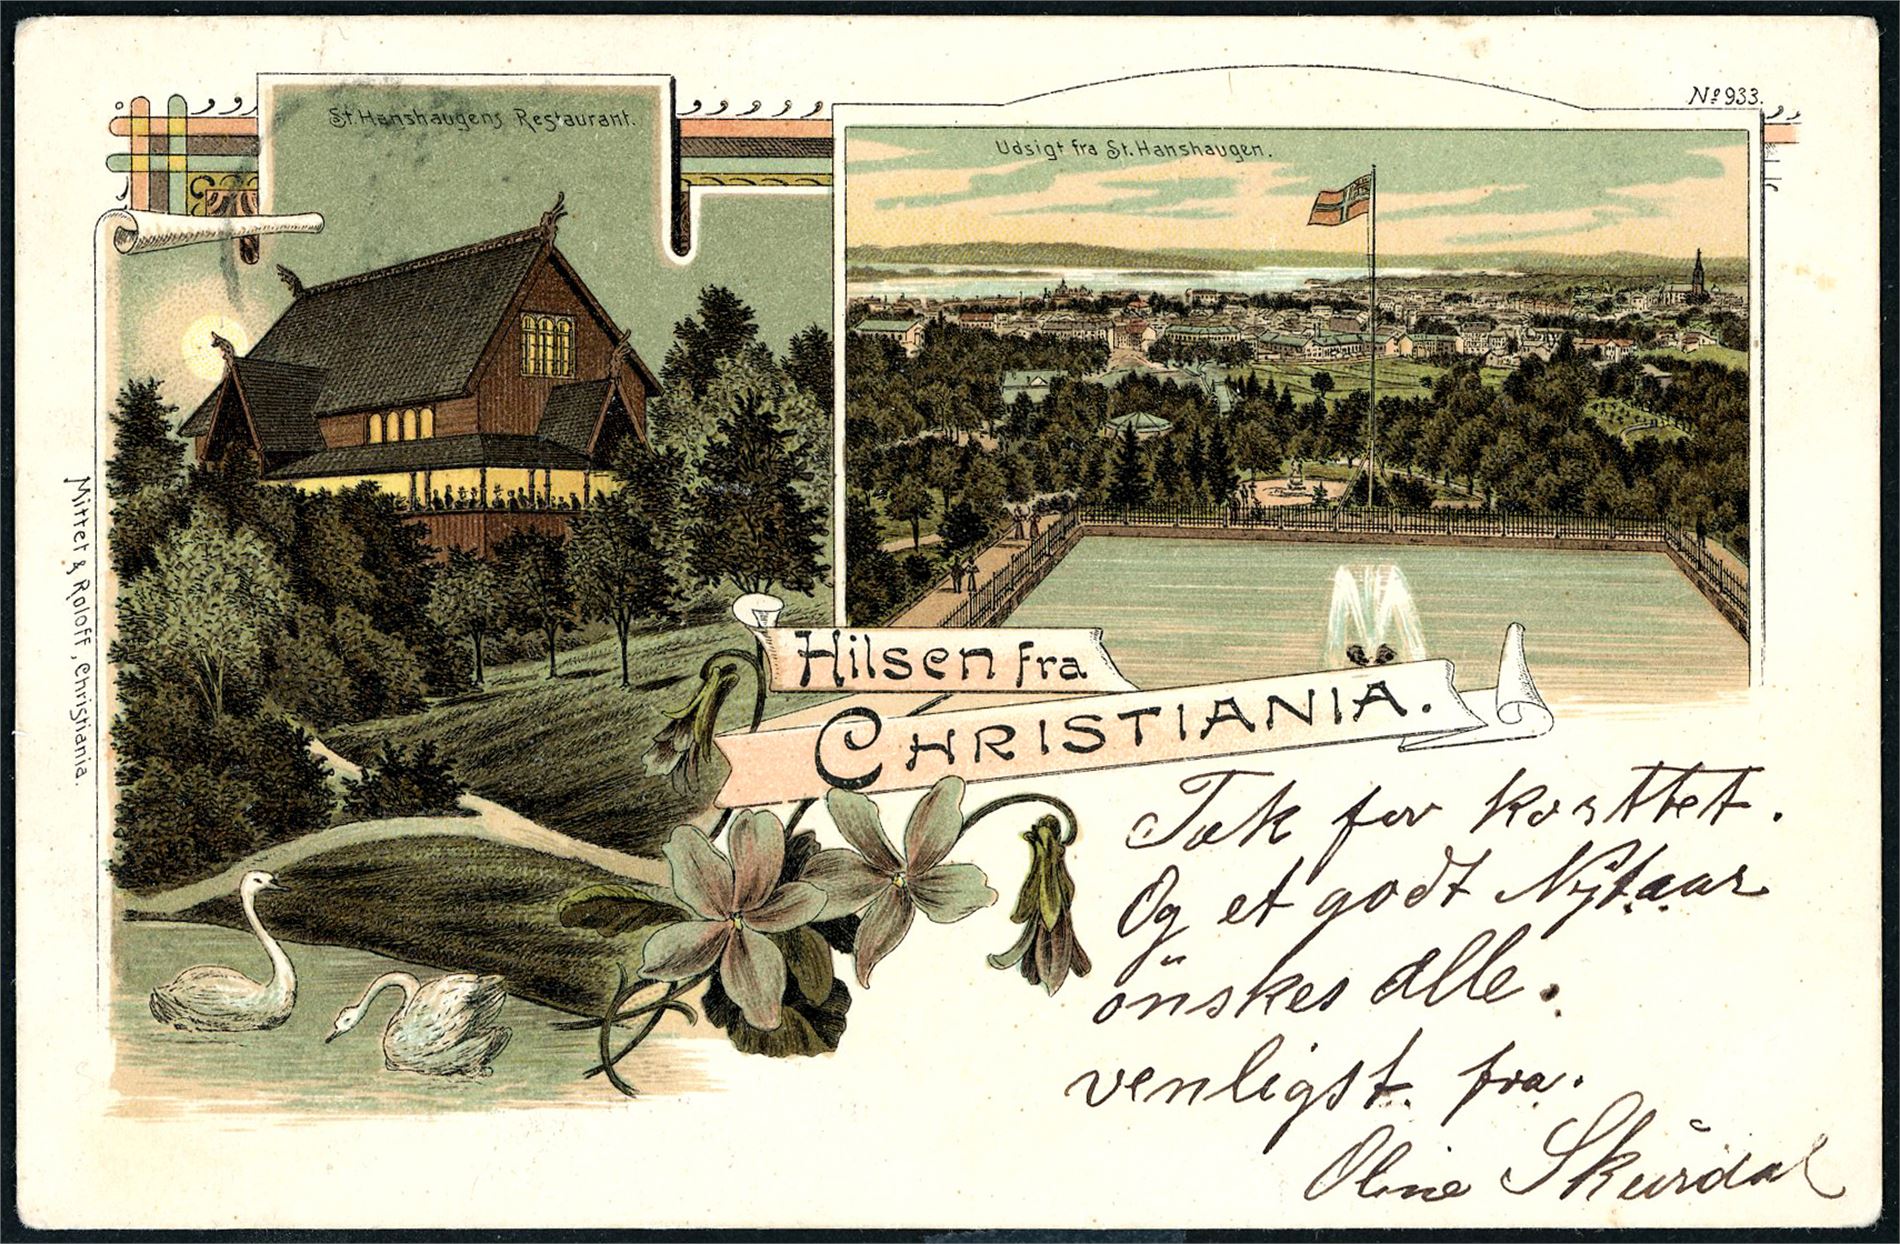 St. Hanshaugens Restaurant.
Nº 933.
Udsigt fra St. Hanshaugen.
Mittet & Roloff, Christiania.
Hilsen fra
CHRISTIANIA.
Tak for korttet.
Og et godt Nytaar
önskes alle.
venligst. fra.
Oline Skŭrdal